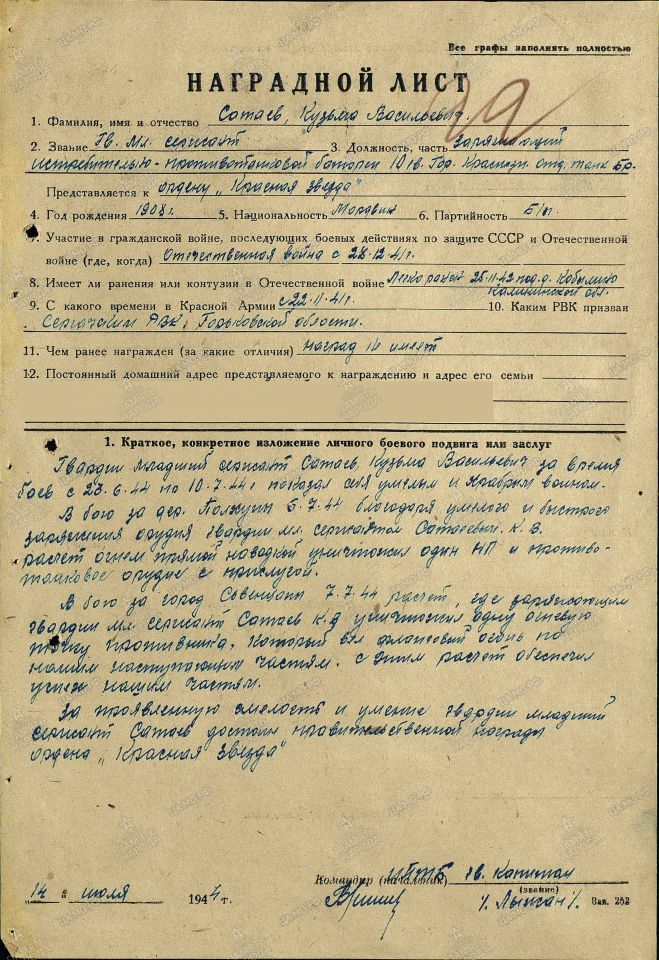 Все графы заполнять полностью
НАГРАДНОЙ ЛИСТ
1. Фамилия, имя и отчество Сатаев, Кузьма Васильевич.
2. Звание Гв. Мл. сержант 3. Должность, часть Заряжающий
истребительно-противотанковой батареи 10 гв. Гор. Краснозн. отд. танк. Бр.
Представляется к ордену „Красная звезда"
4. Год рождения 1908 г. 5. Национальность Мордвин 6. Партийность Б/п
7. Участие в гражданской войне, последующих боевых действиях по защите СССР и Отечественной
войне (где, когда) Отечественная война с 28.12.41г.
8. Имеет ли ранения или контузии в Отечественной войне Легко ранен 25.11.42 под д. Кобылино
Калининской обл.
9. С какого времени в Красной Армии с 22.11.41г. 10. Каким РВК призван
Сергачским РВК, Горьковской области.
11. Чем ранее награжден (за какие отличия) наград не имеет
12. Постоянный домашний адрес представляемого к награждению и адрес его семьи
1. Краткое, конкретное изложение личного боевого подвига или заслуг
Гвардии младший сержант Сатаев, Кузьма Васильевич за время
боев с 23.6.44 по 10.7.44г показал себя умелым и храбрым воином.
В бою за дер. 5.7.44 благодаря умелого и быстрого
заряжения орудия гвардии мл. сержантом Сатаевым К. В.
расчет огнем прямой наводкой уничтожил один НП и противо-
танковое орудие с прислугой.
В бою за город Свенцяны 7.7.44 расчет, где заряжающим
гвардии мл. сержант Сатаев К.В уничтожил одну огневую
точку противника, который вел фланговый огонь по
нашим наступающим частям. С этим расчет обеспечил
успех нашим частям.
За проявленную смелость и умение гвардии младший
сержант Сатаев достоин правительственной награды
ордена „Красная звезда"
Командир (начальник) ИПТБ гв. Капитан
(звание)
„14" июля 1944 г. Зак. 252